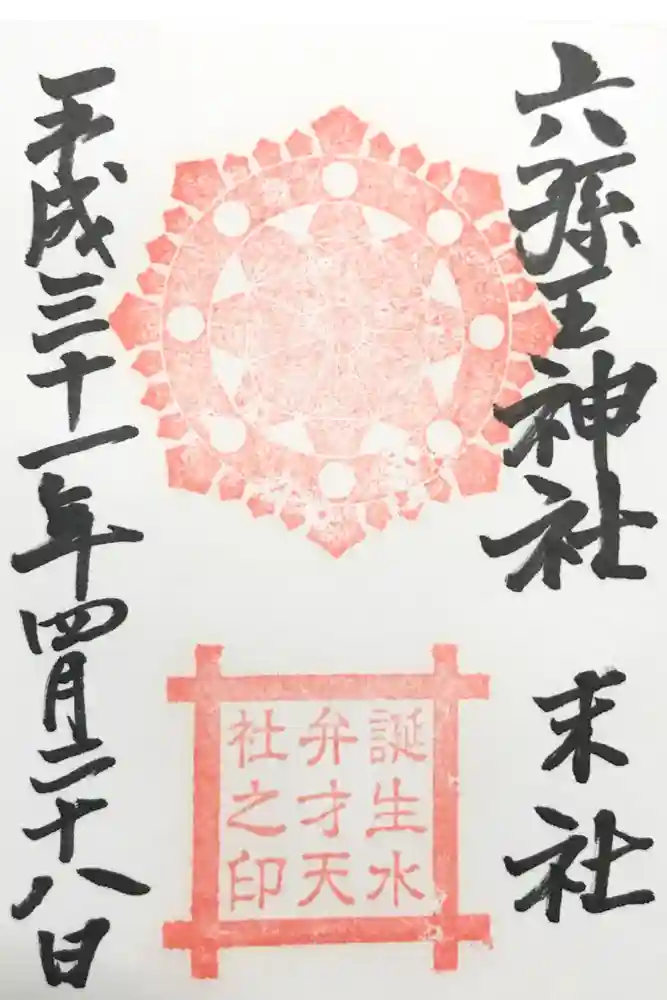 六孫王神社
末社
誕生水
弁才天
社之印
平成三十一年四月二十八日